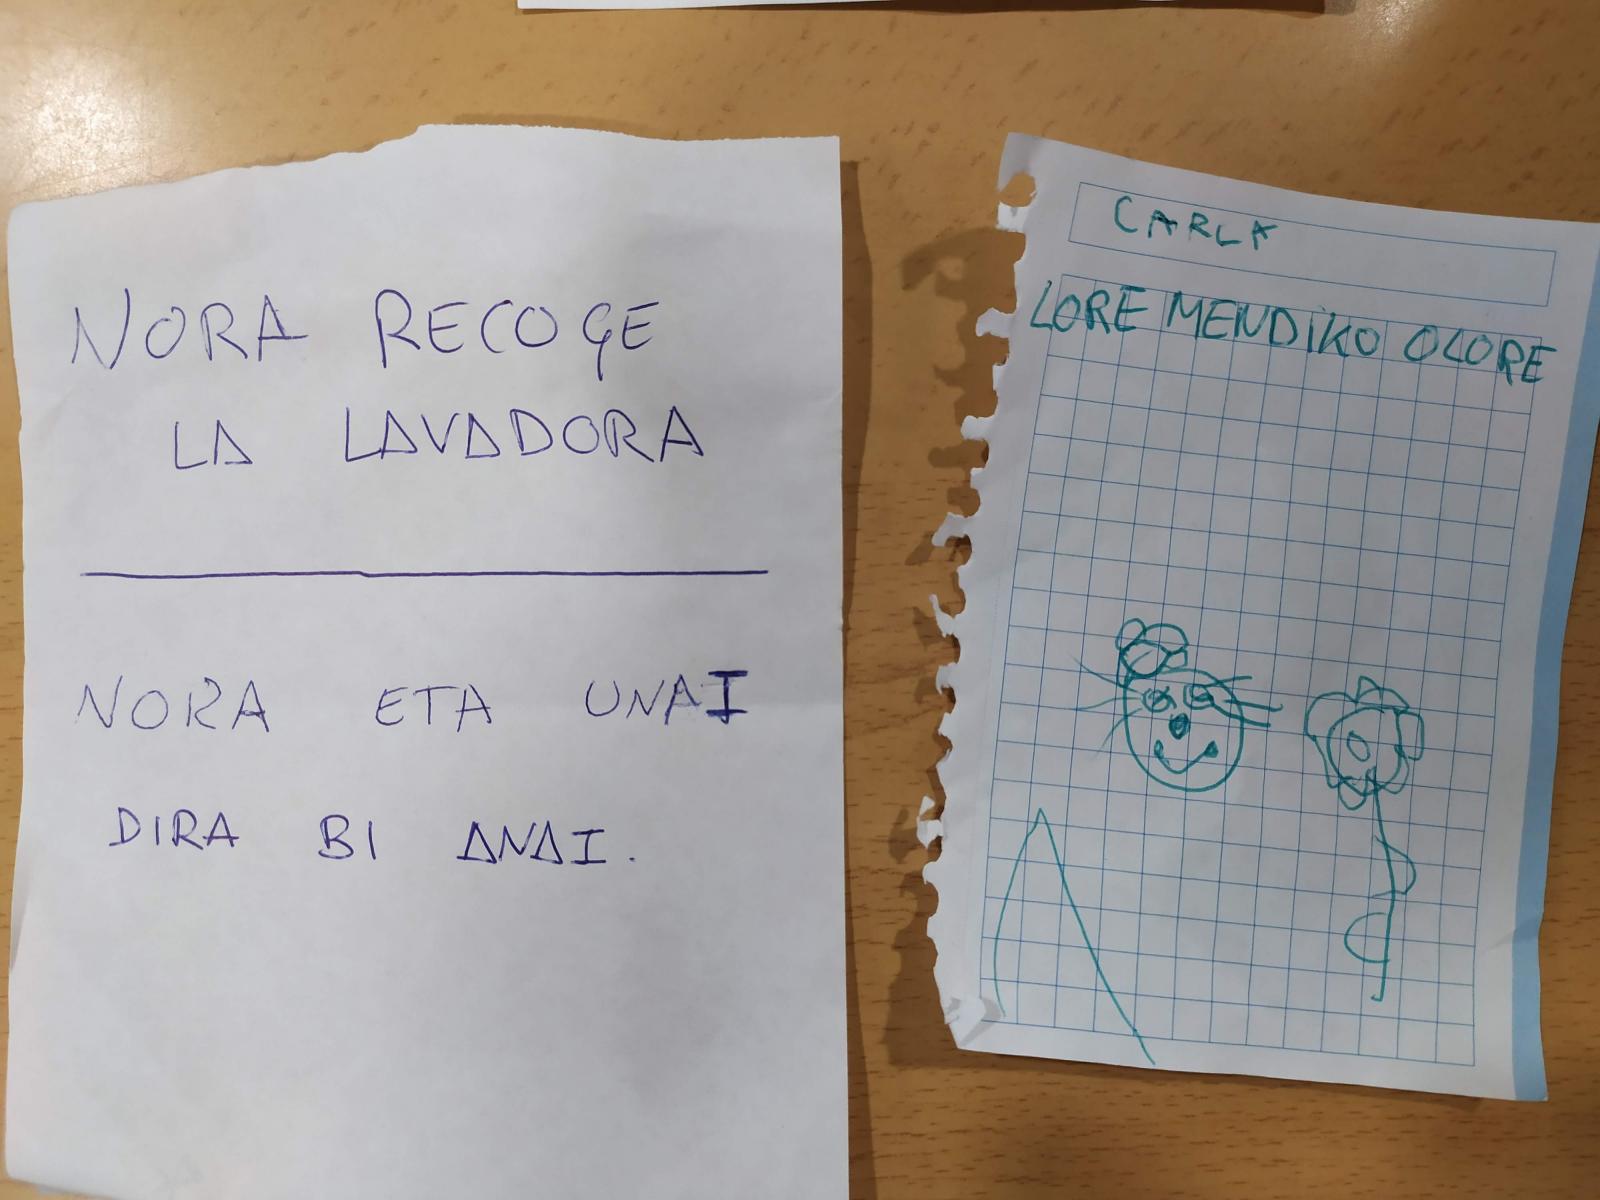 NORA RECOGE
LA LAVADORA
NORA ETA UNAI
DIRA BI ANAI.
CARLA
LORE MENDIKO OLORE